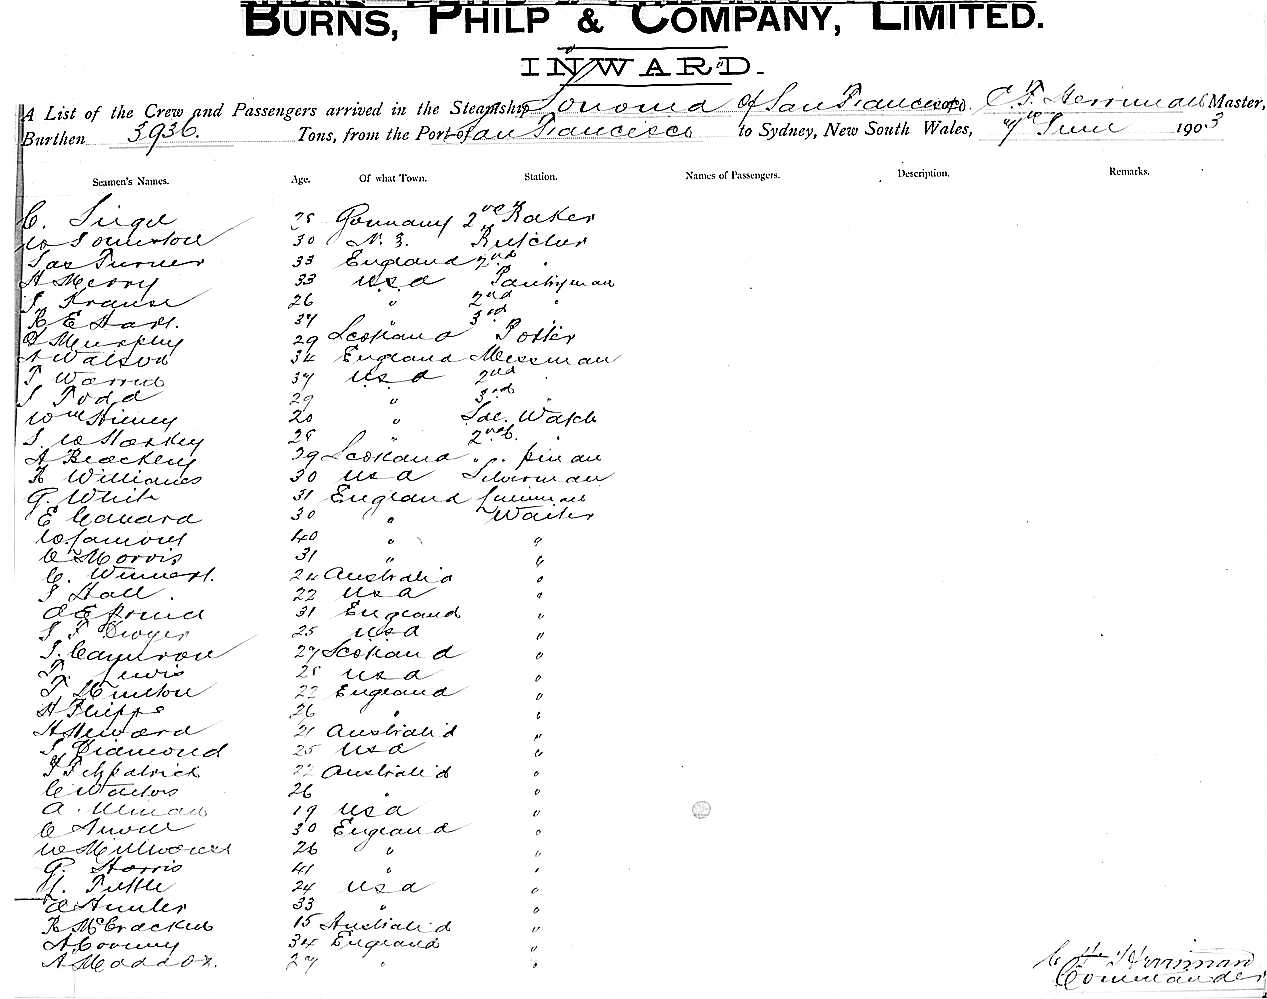 BURNS, PHILP & COMPANY, LIMITED.
INWARD.
A List of the Crew and Passengers arrived in the Steamship Sonoma of San Francisco C. F. Herriman Master,
Burthen 3936. Tons, from the Port of San Francisco to Sydney, New South Wales, 7th June 1903
Seamen's Names. Age. Of what Town. Station. Names of Passengers. Description. Remarks.
C. 28 Germany 2nd Baker
W 30 N. Z. Butcher
Jas Turner 33 England 2nd "
A Merry 33 USA Pantryman
J. Krause 26 " 2nd "
R E Hart. 37 " 3rd
Murphy 29 Scotland Porter
A Watson 34 England Messman
T Warren 37 USA 2nd "
J Todd 29 " 3rd "
Wm 20 " Sal. Watch
J. W 28 " 2nd "
A 39 Scotland
R Williams 30 USA Silverman
G. White 31 England Linenman
E 30 " Waiter
W 40 " "
C Morris 31 " "
C. 24 Australia "
J Hall. 22 USA "
31 England "
J F Dwyer 25 USA "
J. Cameron 27 Scotland "
T. Lewis 28 USA "
T 22 England "
A Phipps 26 " "
A 21 Australia "
J Diamond 25 USA "
J Fitzpatrick 22 Australia "
C Waters 26 " "
A. 19 USA "
C 30 England "
W 26 " "
G. Harris 41 " "
Tuttle 24 USA "
Hunter 33 " "
R McCracken 15 Australia "
A 34 England "
A Maddox. 27 " "
C. Herriman
Commander